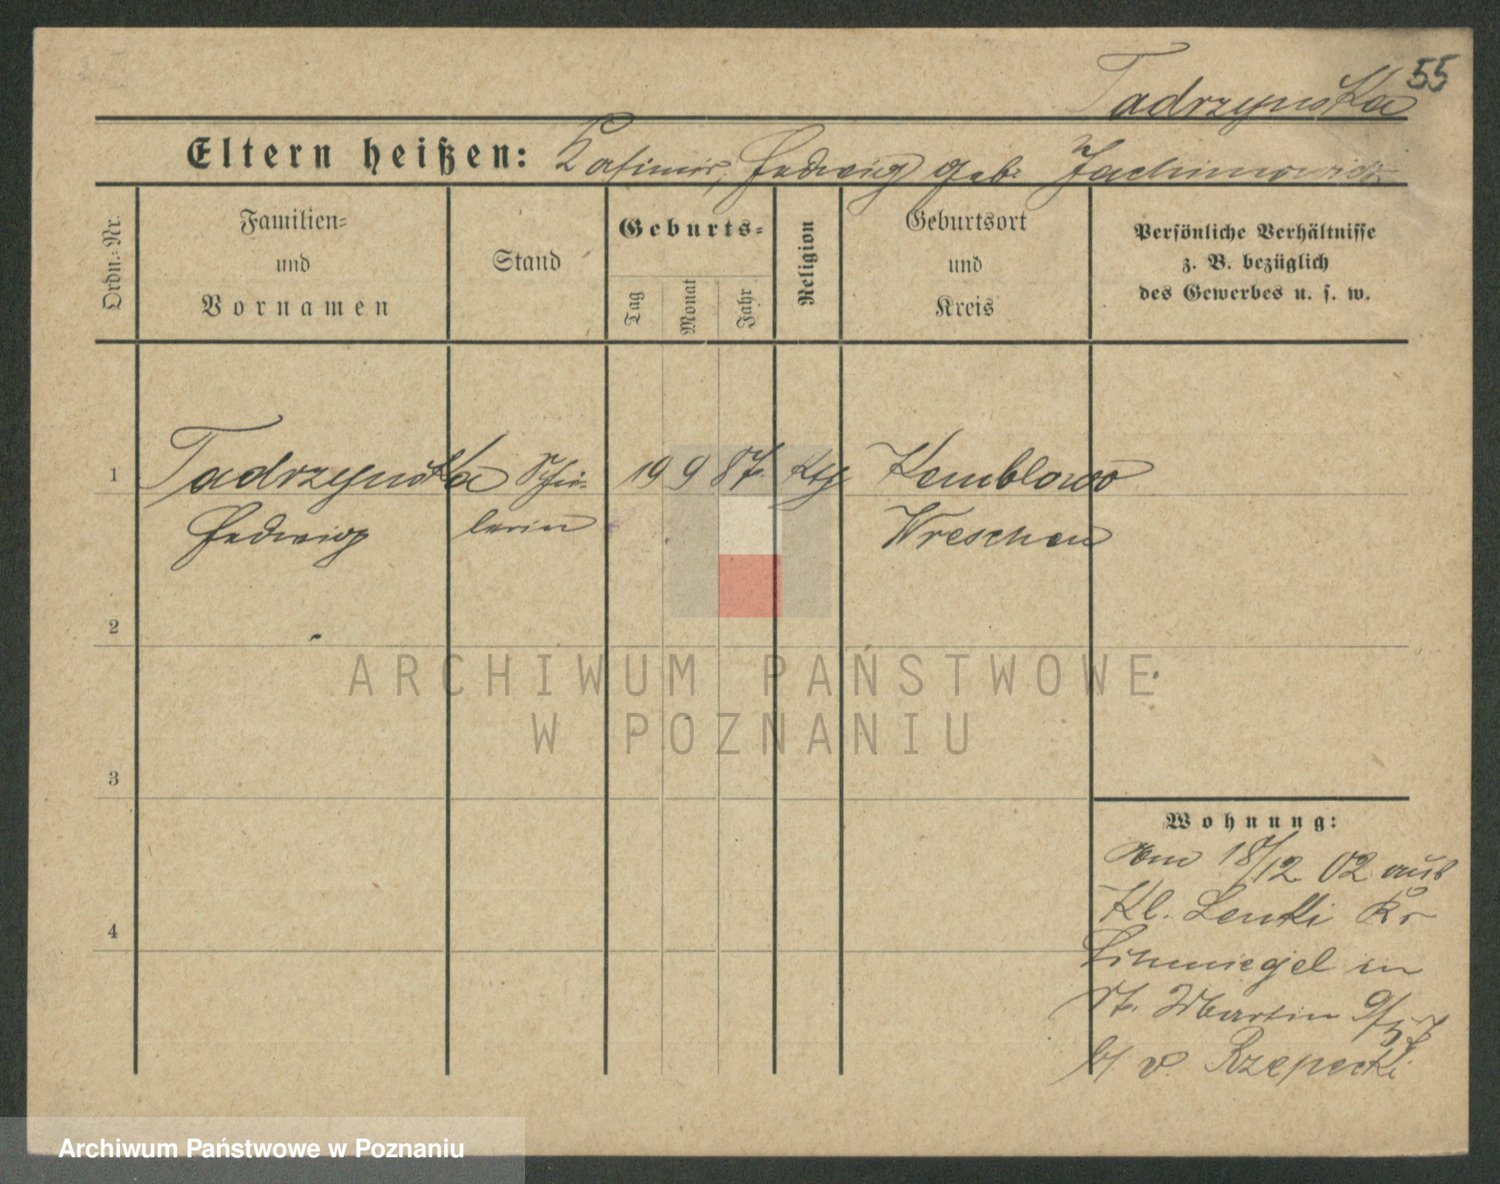 55
Tadrzynska
Eltern heißen: Kasimir, Hedwig geb. Jachimowicz
Ordn.-Nr.
Familien-
und
Vornamen
Stand
Geburts-
Tag
Monat
Jahr
Religion
Geburtsort
und
Kreis
Persönliche Verhältnisse
z. B. bezüglich
des Gewerbes u. s. w.
1 Tadrzynska Schü- 19 9 87. kth Kemblowo
Hedwig lerin Wreschen
2
ARCHIWUM PAŃSTWOWE
W POZNANIU
3
Wohnung:
18/12 02 aus
Kl. Lenki Kr
Schmiegel in
St. Martin
b/ v. Rzepecki
4
Archiwum Państwowe w Poznaniu